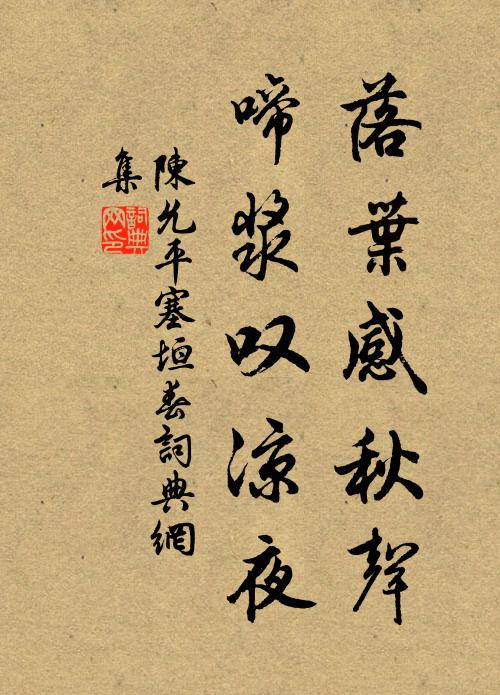 落葉感秋聲
啼漿叹涼夜
陳允平塞垣春詞典網
集
詞典
网印